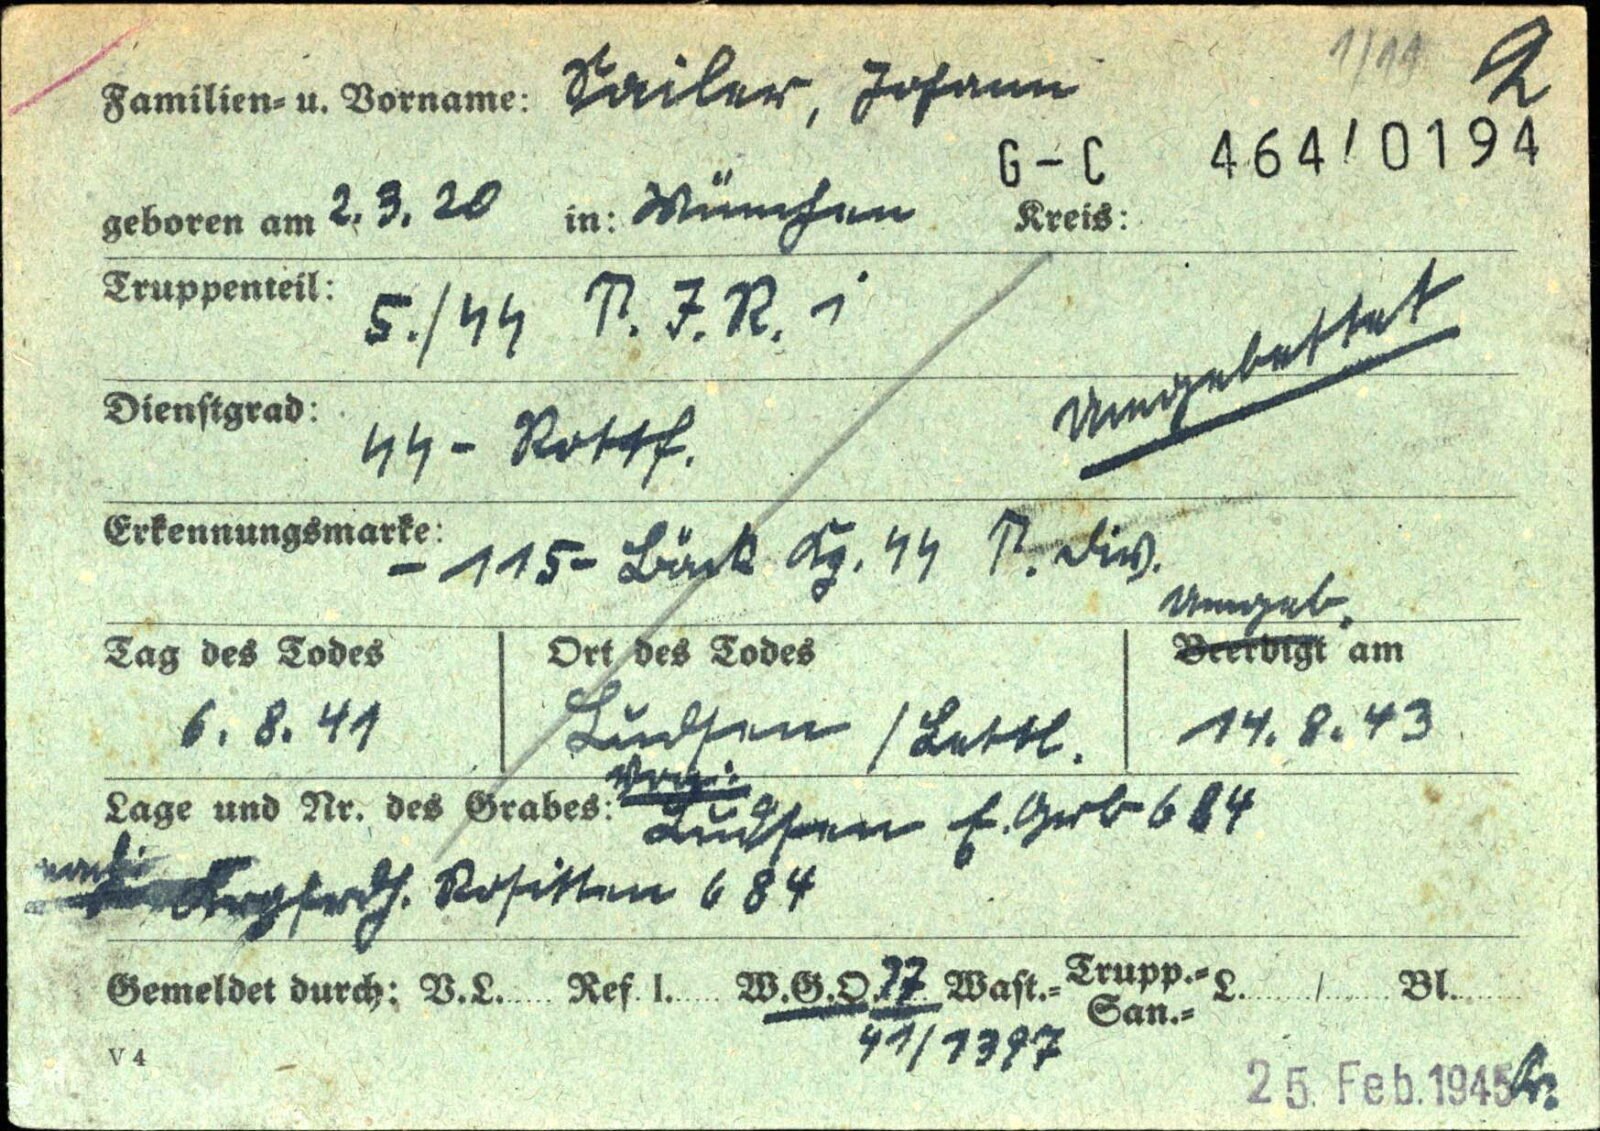 1/11 2
Familien- u. Vorname: Sailer, Johann
G-C 464/0194
geboren am 2.3.20 in: München Kreis:
Truppenteil: 5./SS T.J.R. 1
Umgebettet
Dienstgrad: SS-Rottf.
Erkennungsmarke: -115- Bäck Kp. SS T. Div.
Umgeb.
Tag des Todes Ort des Todes Beerdigt am
6.8.41 Ludsen / Lettl. 14.8.43
Lage und Nr. des Grabes: Ludsen E. Grb 684
Rositten 684
Gemeldet durch: V.L. Ref. 1. W.G.O. 77 Wast.- Trupp.- San.- L. / Bl.
41/1397
V 4
25. Feb. 1945